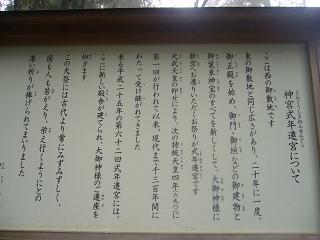 神宮式年遷宮について
ここは西の御敷地です
東の御敷地と同じ広さがあり、二十年に一度、
御正殿を始め、御門・御垣などの御建物と
御装束神宝のすべてを新しくして、大御神様に
新宮へお遷りいただくお祭りが式年遷宮です
天武天皇の御代に、次の持統天皇四年(六九〇)に
第一回が行われて以来、現代まで千三百年間に
わたって受け継がれてきました
来る平成二十五年の第六十二回式年遷宮には、
ここに新しい殿舎が建てられ、大御神様の遷座を
仰ぎます
この大祭には古代より常にみずみずしく、
国も人も若がえり、栄え行くようにとの
深い祈りが捧げられてまいりました